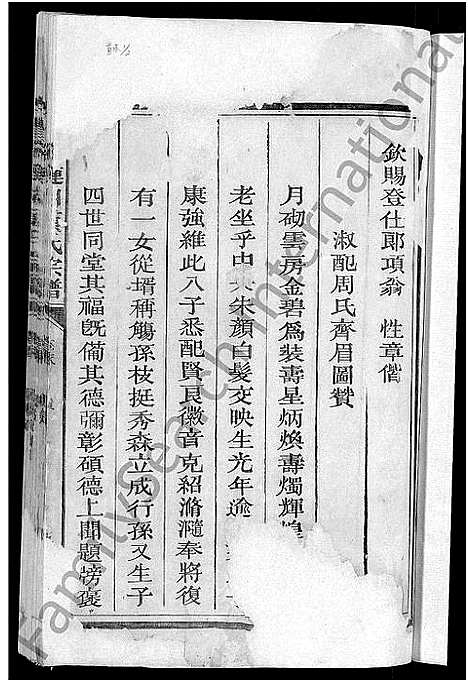 欽賜登仕郎項翁 性章偕
淑配周氏齊眉圖贊
月砌雲房金碧爲裝壽星炳煥壽燭輝煌
老坐乎中 朱顏白髮交映生光年逾
康強維此八子悉配賢良徽音克紹滫瀡奉將復
有一女從壻稱觴孫枝挺秀森立成行孫又生子
四世同堂其福旣備其德彌彰碩德上聞題榜褒
氏宗譜
Familysearch International